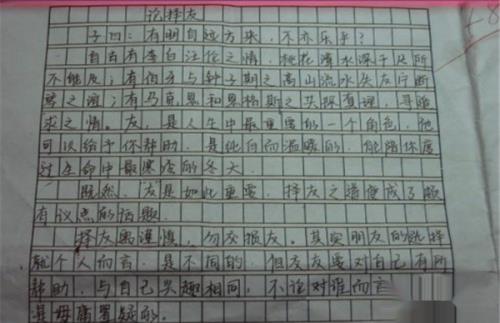 论择友
子曰：有朋自远方来，不亦乐乎？
自古有李白汪伦之情，桃花潭水深千尺所
不能及；有伯牙与钟子期之高山流水失友而断
琴之谊；有马克思和恩格斯之共探真理，寻
求之情。友，是人生中最重要的一个角色，他
可以给予你帮助，是纯白而温暖的，能陪你度
过生命中最寒冷的冬天。
既然，友是如此重要，择友之道便成了颇
有议点的话题。
择友需谨慎，勿交损友。其实朋友的选择
就个人而言，是不同的，但友友要对自己有所
帮助，与自己兴趣相同，不论对谁而言
是毋庸置疑的。